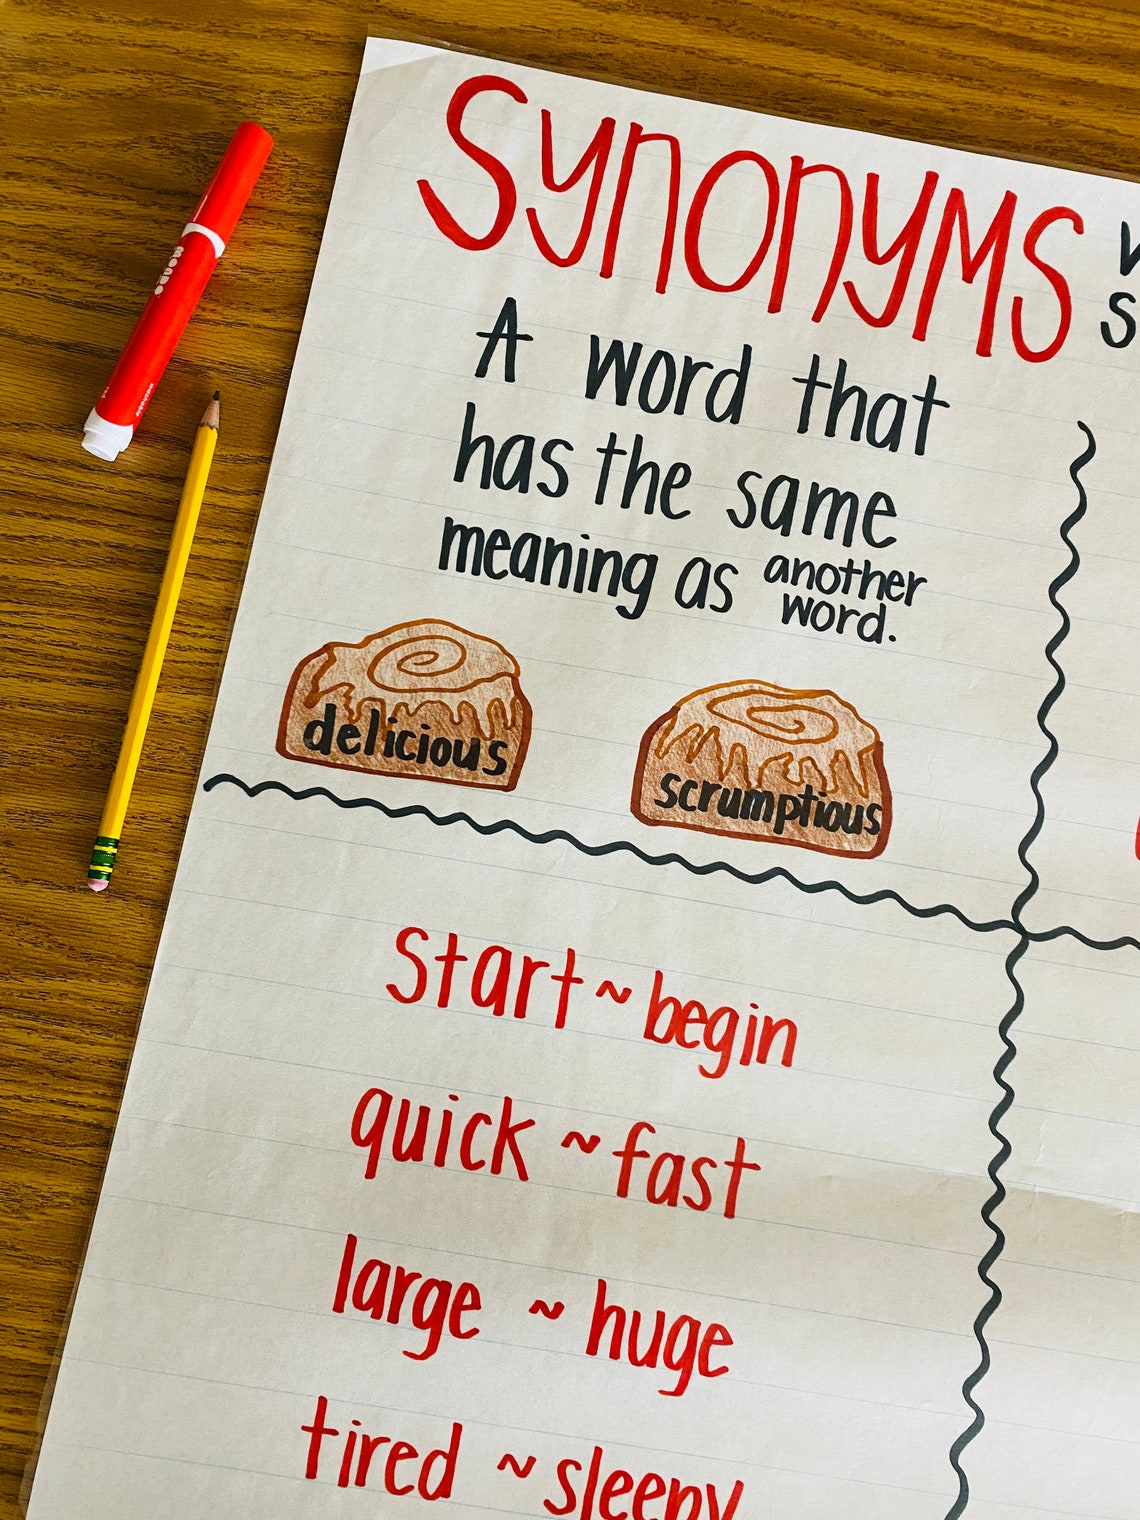 Synonyms
A word that
has the same
meaning as another
word.
delicious
scrumptious
start ~ begin
quick ~ fast
large ~ huge
tired ~ sleepy
washable